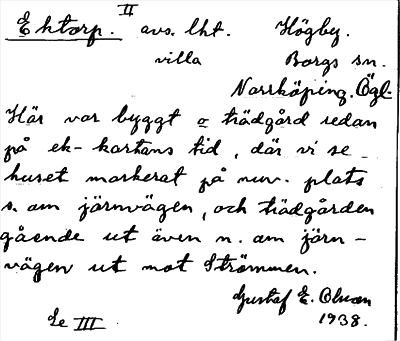 Ektorp. II avs. lht. Högby.
villa Borgs sn.
Norrköping. Ögl.
Här var byggt o trädgård redan
på ek-kartans tid, där vi se
huset markerat på nuv. plats
s. om järnvägen, och trädgården
gående ut även n. om järn-
vägen ut mot Strömmen.
Gustaf E. Olsson
1938.
Le III